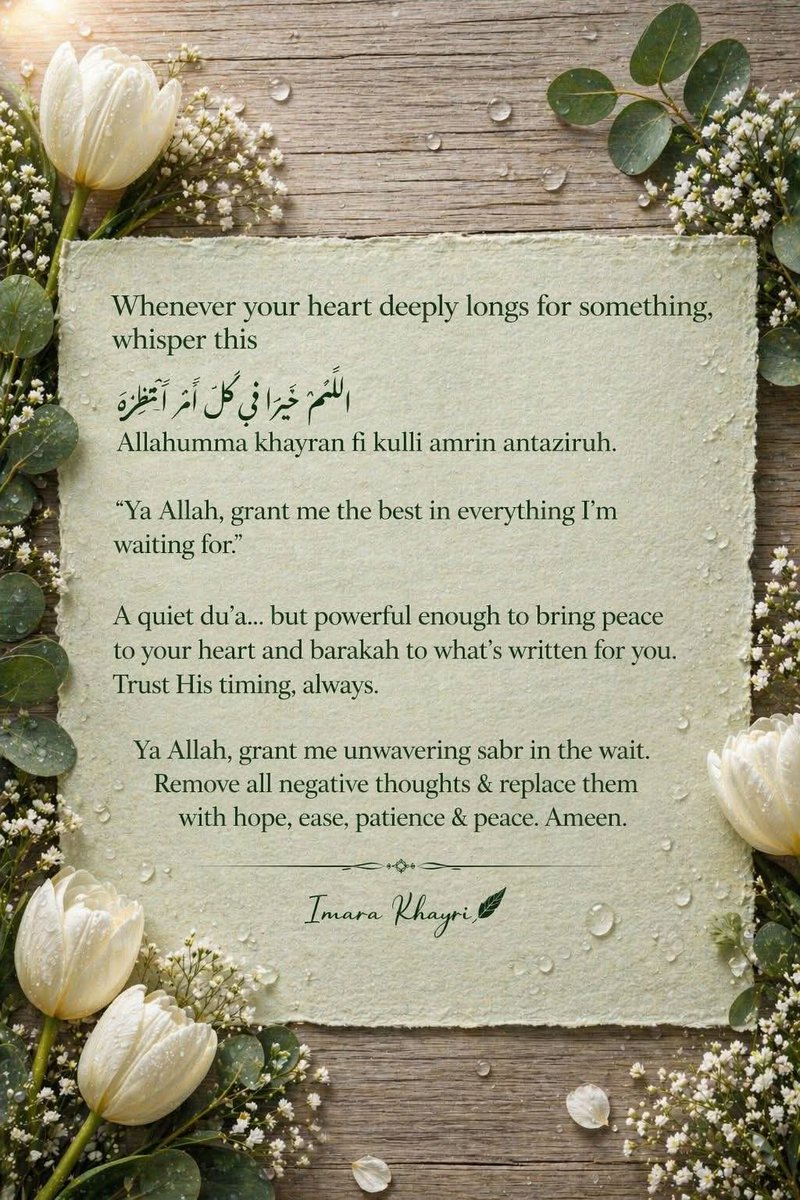 Whenever your heart deeply longs for something,
whisper this
اللَّهُمَّ خَيْرًا فِي كُلِّ أَمْرٍ أَنْتَظِرُهُ
Allahumma khayran fi kulli amrin antaziruh.
“Ya Allah, grant me the best in everything I’m
waiting for.”
A quiet du’a... but powerful enough to bring peace
to your heart and barakah to what’s written for you.
Trust His timing, always.
Ya Allah, grant me unwavering sabr in the wait.
Remove all negative thoughts & replace them
with hope, ease, patience & peace. Ameen.
Imara Khayri